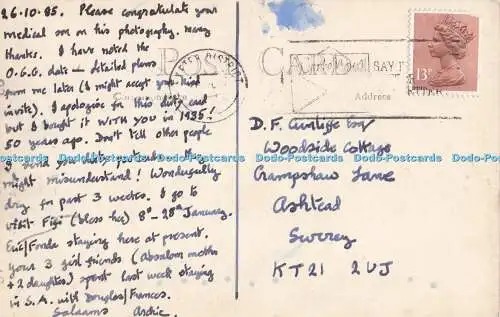 26.10.85. Please congratulate your
medical son on his photography. many
thanks. I have noted the
O.G.G. date – detailed plans
from me later (I might accept your kind
invite). I apologise for this dirty card
but I bought it WITH YOU in 1935!
50 years ago. Don't tell other people
I send you dirty postcards – they
might misunderstand! Wonderfully
dry for past 3 weeks. I go to
visit Fifi (bless her) 8th - 28th January.
Eric/Freda staying here at present.
your 3 girl friends (Absalom mother
+ 2 daughters) spent last week staying
in S.A. with Douglas/Frances.
Salaams Archie.
POST CARD
DISTRICT
SAY IT
Address
13P
D. F. Cunliffe Esq
Woodside Cottage
Crampshaw Lane
Ashtead
Surrey
KT21 2UJ
www.hippostcard.com